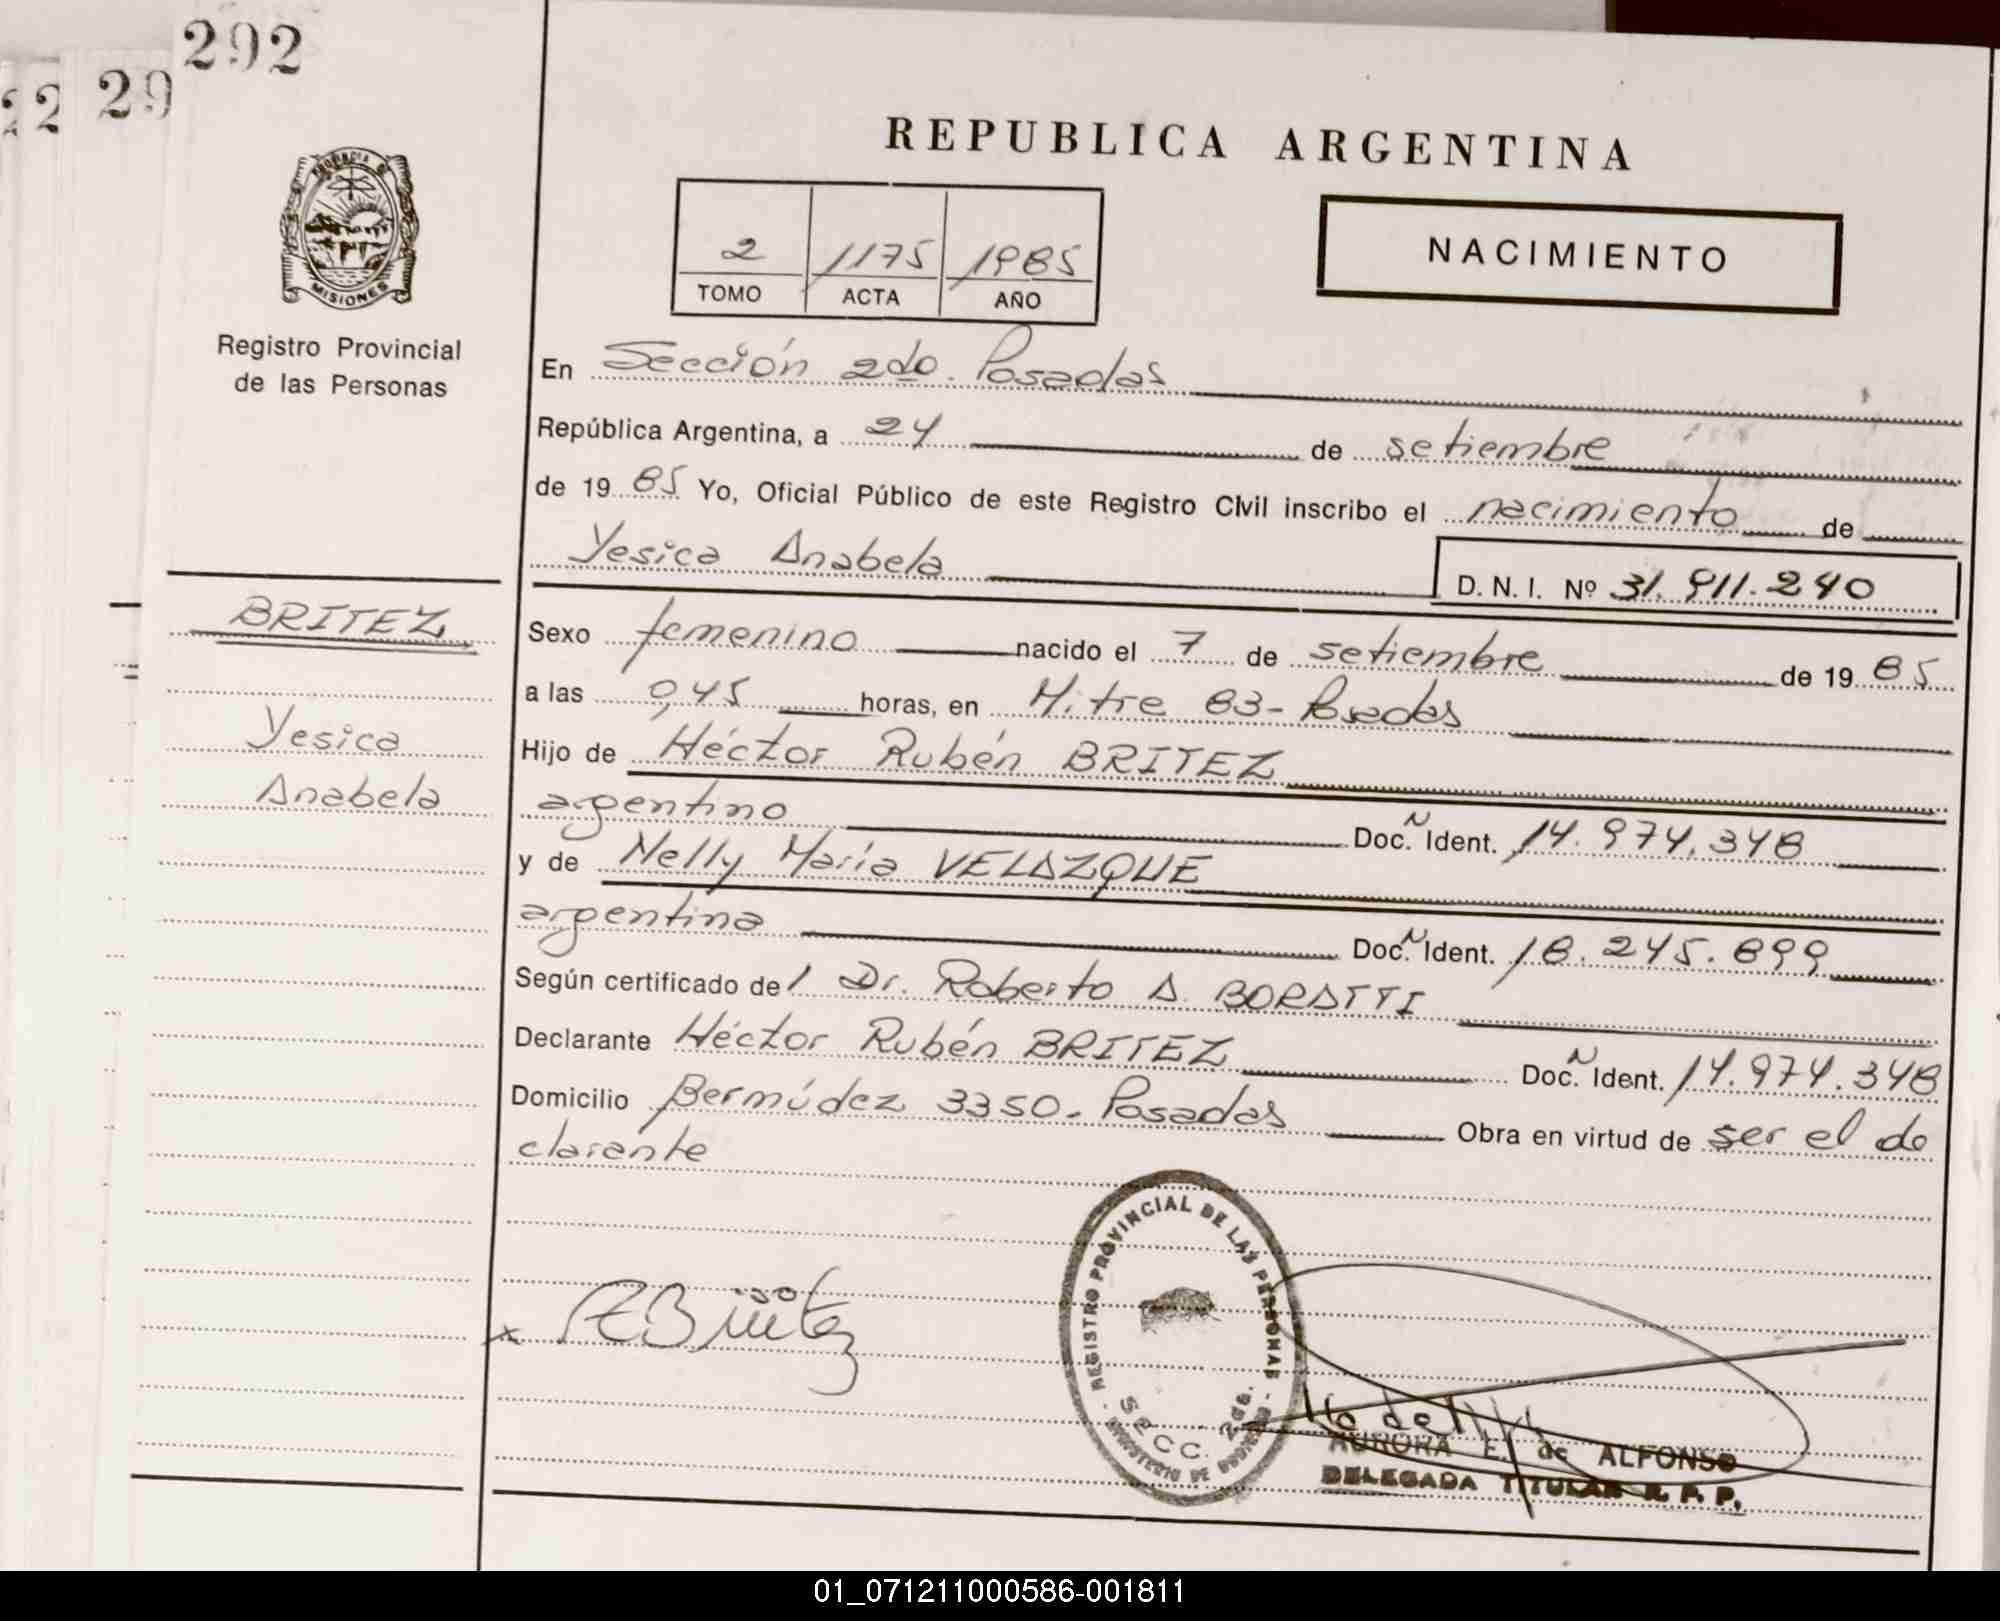 292
29
22
REPUBLICA ARGENTINA
PROVINCIA DE
MISIONES
Registro Provincial
de las Personas
2 1175 1985
TOMO ACTA AÑO
NACIMIENTO
En Sección 2do. Posadas
República Argentina, a 24 de setiembre
de 1985 Yo, Oficial Público de este Registro Civil inscribo el nacimiento de
Yesica Anabela
D. N. I. Nº 31.911.240
BRITEZ
Yesica
Anabela
Sexo femenino nacido el 7 de setiembre de 1985
a las 0,45 horas, en Mitre 83-Posadas
Hijo de Héctor Rubén BRITEZ
argentino Doc. N Ident. 14.974.348
y de Nelly María VELAZQUE
argentina Doc. N Ident. 18.245.899
Según certificado del Dr. Roberto A. BORATTI
Declarante Héctor Rubén BRITEZ Doc. N Ident. 14.974.348
Domicilio Bermúdez 3350-Posadas Obra en virtud de ser el de
clarante
REGISTRO PROVINCIAL DE LAS PERSONAS
SECC. 2da.
MINISTERIO DE GOBIERNO
x
AURORA E. de ALFONSO
DELEGADA TITULAR R. P. P.
01_071211000586-001811